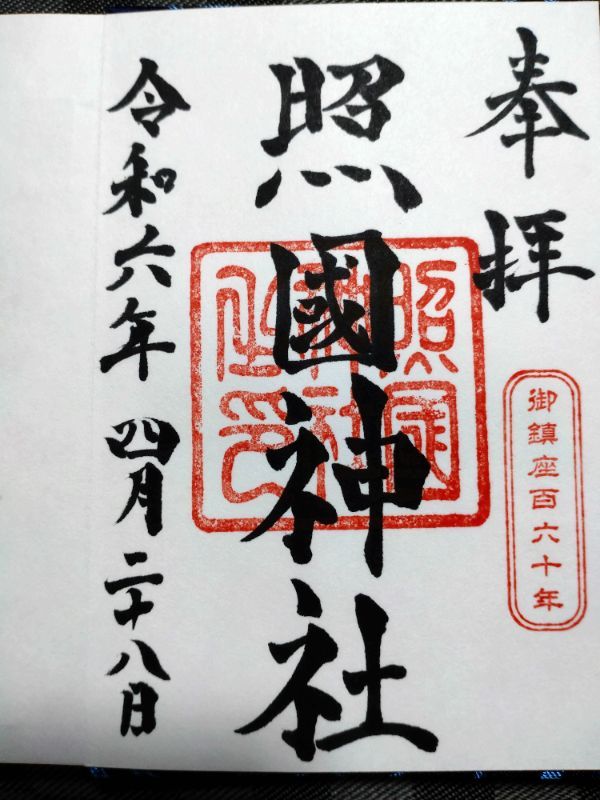 奉拝
御鎮座百六十年
照國神社
令和六年 四月二十八日